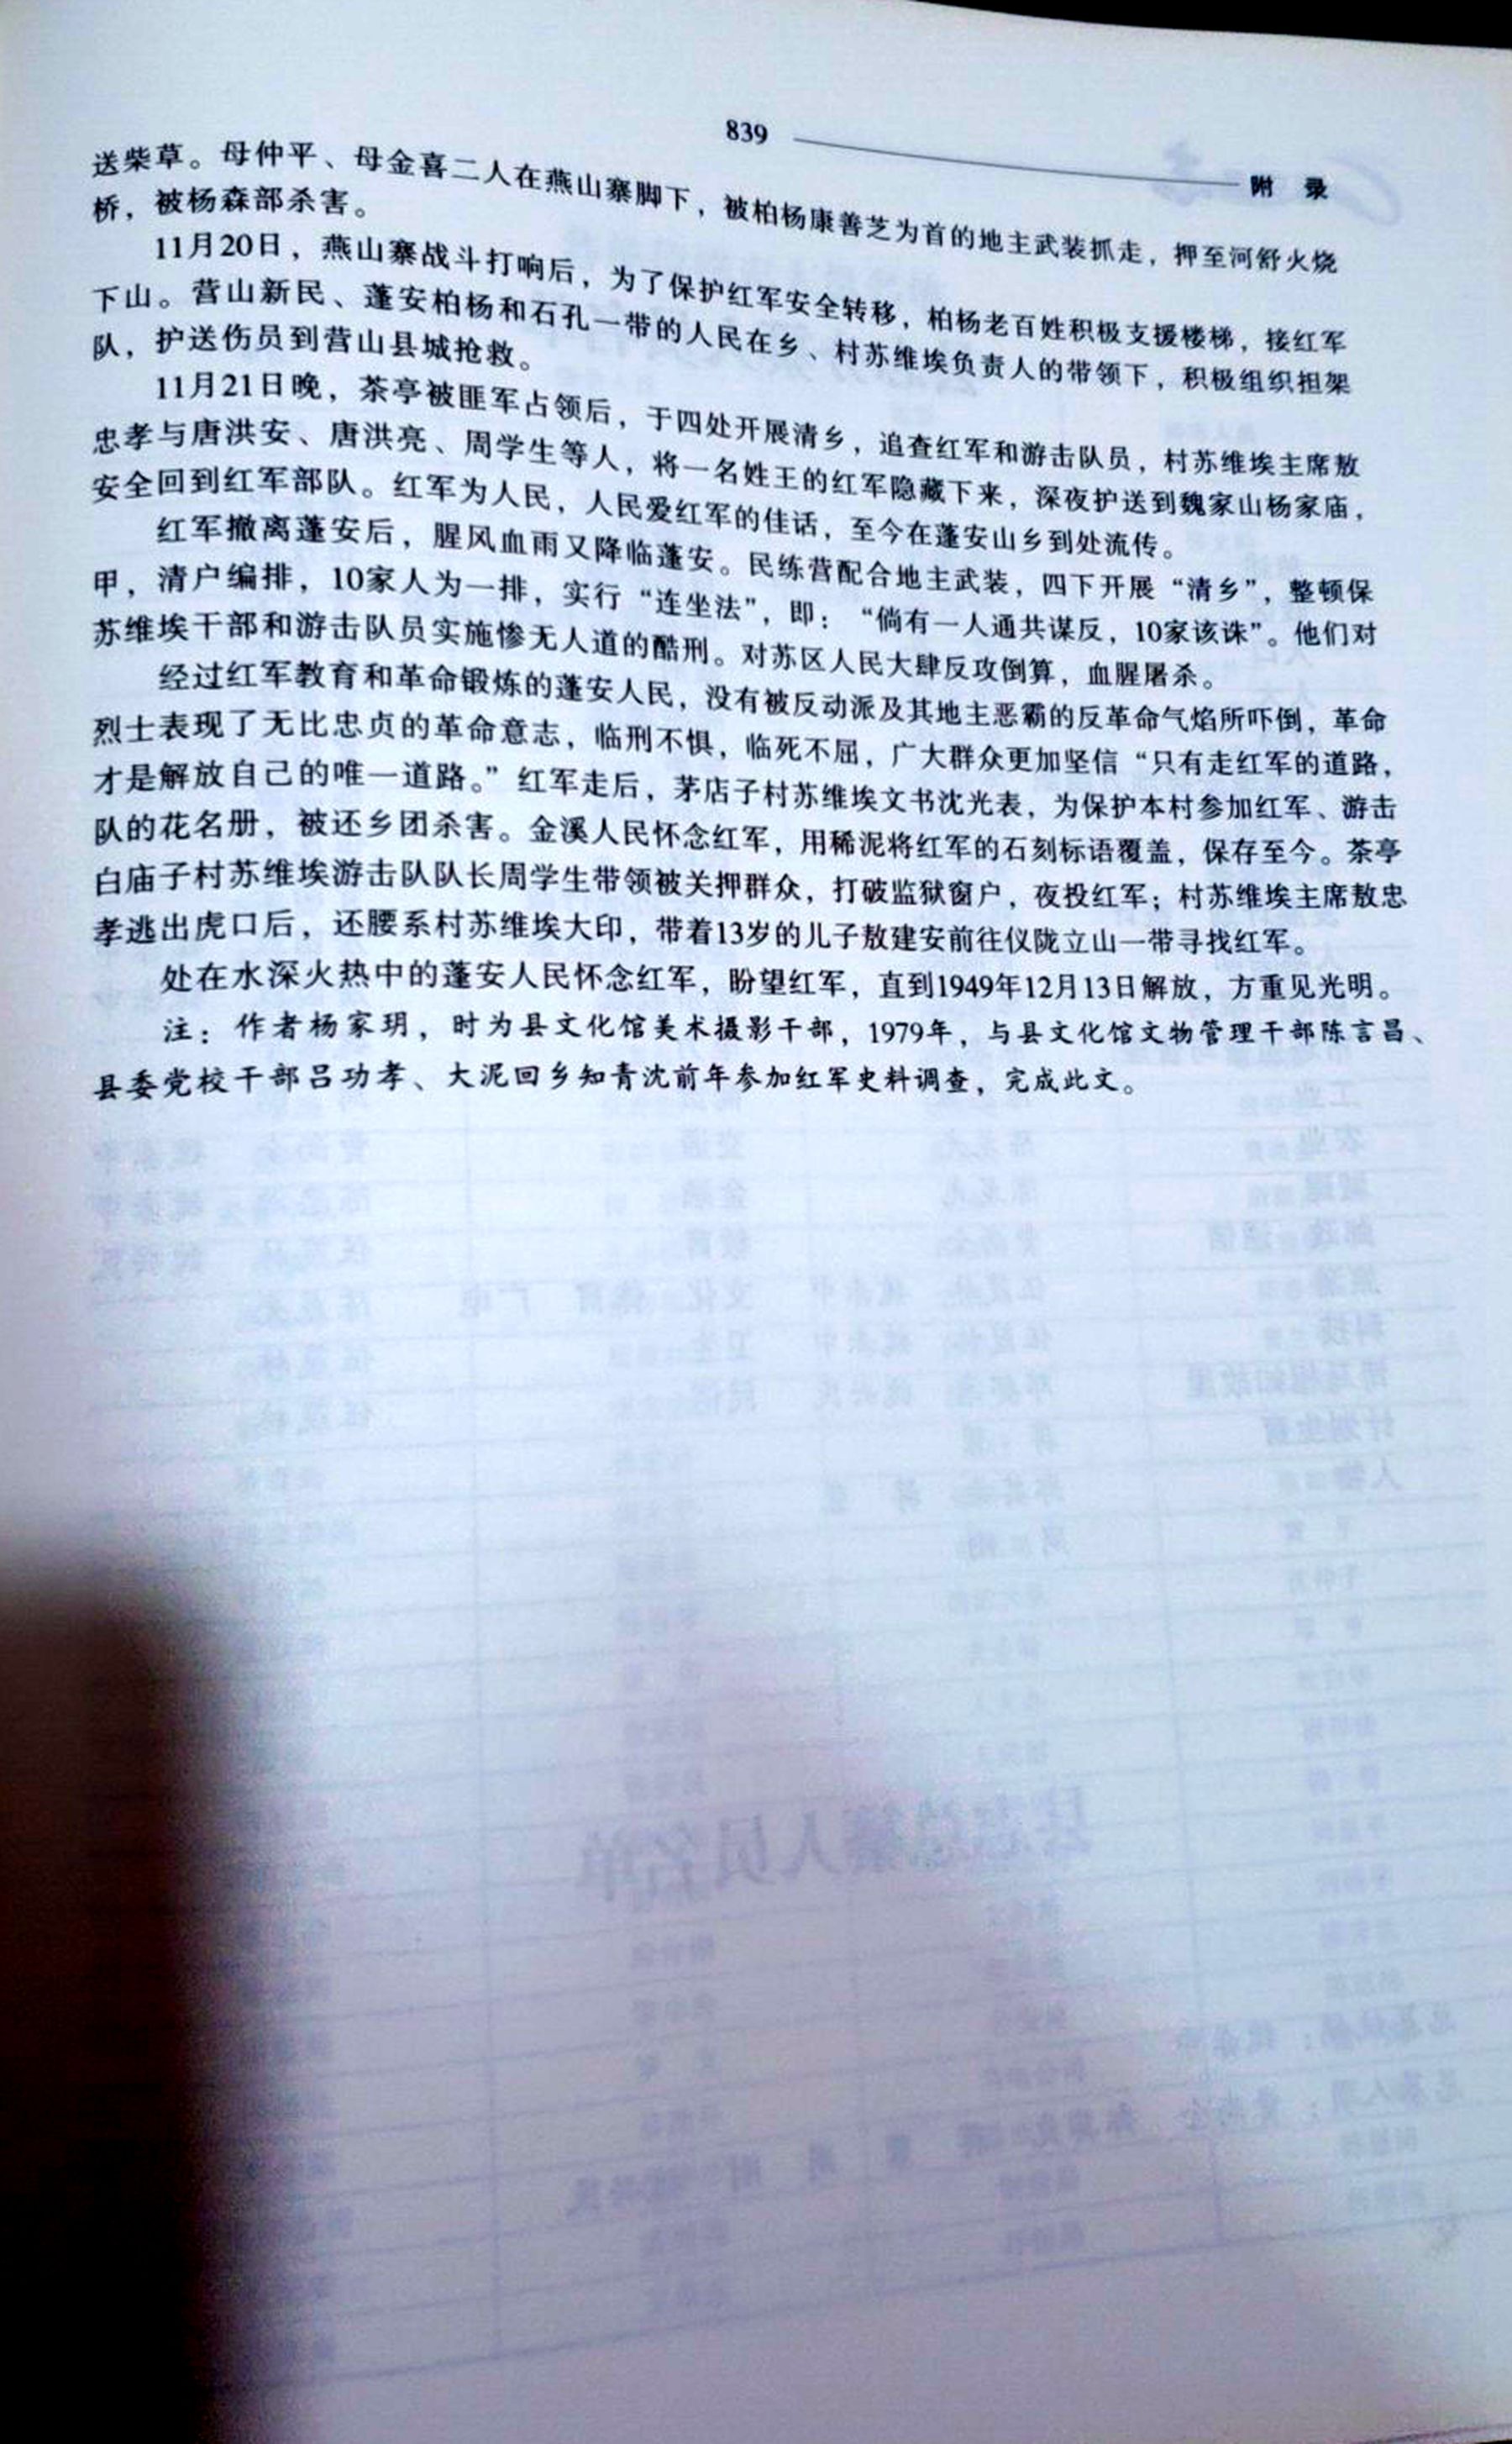 839
附 录
送柴草。母仲平、母金喜二人在燕山寨脚下，被柏杨康善芝为首的地主武装抓走，押至河舒火烧
桥，被杨森部杀害。
11月20日，燕山寨战斗打响后，为了保护红军安全转移，柏杨老百姓积极支援楼梯，接红军
下山。营山新民、蓬安柏杨和石孔一带的人民在乡、村苏维埃负责人的带领下，积极组织担架
队，护送伤员到营山县城抢救。
11月21日晚，茶亭被匪军占领后，于四处开展清乡，追查红军和游击队员，村苏维埃主席敖
忠孝与唐洪安、唐洪亮、周学生等人，将一名姓王的红军隐藏下来，深夜护送到魏家山杨家庙，
安全回到红军部队。红军为人民，人民爱红军的佳话，至今在蓬安山乡到处流传。
红军撤离蓬安后，腥风血雨又降临蓬安。民练营配合地主武装，四下开展“清乡”，整顿保
甲，清户编排，10家人为一排，实行“连坐法”，即：“倘有一人通共谋反，10家该诛”。他们对
苏维埃干部和游击队员实施惨无人道的酷刑。对苏区人民大肆反攻倒算，血腥屠杀。
经过红军教育和革命锻炼的蓬安人民，没有被反动派及其地主恶霸的反革命气焰所吓倒，革命
烈士表现了无比忠贞的革命意志，临刑不惧，临死不屈，广大群众更加坚信“只有走红军的道路，
才是解放自己的唯一道路。”红军走后，茅店子村苏维埃文书沈光表，为保护本村参加红军、游击
队的花名册，被还乡团杀害。金溪人民怀念红军，用稀泥将红军的石刻标语覆盖，保存至今。茶亭
白庙子村苏维埃游击队队长周学生带领被关押群众，打破监狱窗户，夜投红军；村苏维埃主席敖忠
孝逃出虎口后，还腰系村苏维埃大印，带着13岁的儿子敖建安前往仪陇立山一带寻找红军。
处在水深火热中的蓬安人民怀念红军，盼望红军，直到1949年12月13日解放，方重见光明。
注：作者杨家玥，时为县文化馆美术摄影干部，1979年，与县文化馆文物管理干部陈言昌、
县委党校干部吕功孝、大泥回乡知青沈前年参加红军史料调查，完成此文。